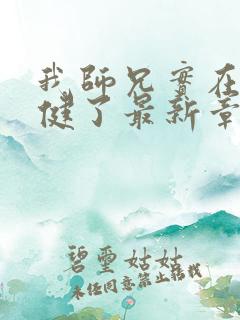 我師兄實在
健了最新章
碧璽姑姑
未經同意禁止轉載